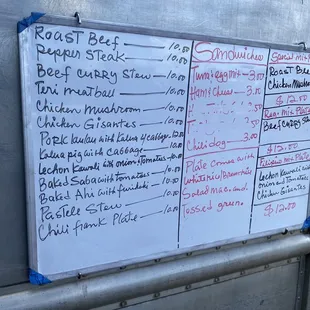 Roast Beef 10.00
Pepper Steak 10.00
Beef curry Stew 10.00
Teri meatball 10.00
Chicken Mushroom 10.00
Chicken Gisantes 10.00
Pork laulau with Kalua & cabbage
Kalua pig with Cabbage 10.00
Lechon Kawali with onion & tomatoes 10.00
Baked Saba with tomatoes 10.00
Baked Ahi with furikake 10.00
Pastele Stew 10.00
Chili frank Plate 10.00
Sandwiches
Tuna & egg mix - 3.00
Ham & cheese - 3.00
Chili dog 3.00
Plate Comes with
white rice/Brown rice
Salad mac. and
Tossed green.
Special mix Plate
Roast Beef
Chicken Mushroom
$12.00
Mix Plate
Beef curry Stew
$12.00
Filipino mix Plate
Lechon Kawali with
onion and Tomatoes
Chicken Gisantes
$12.00